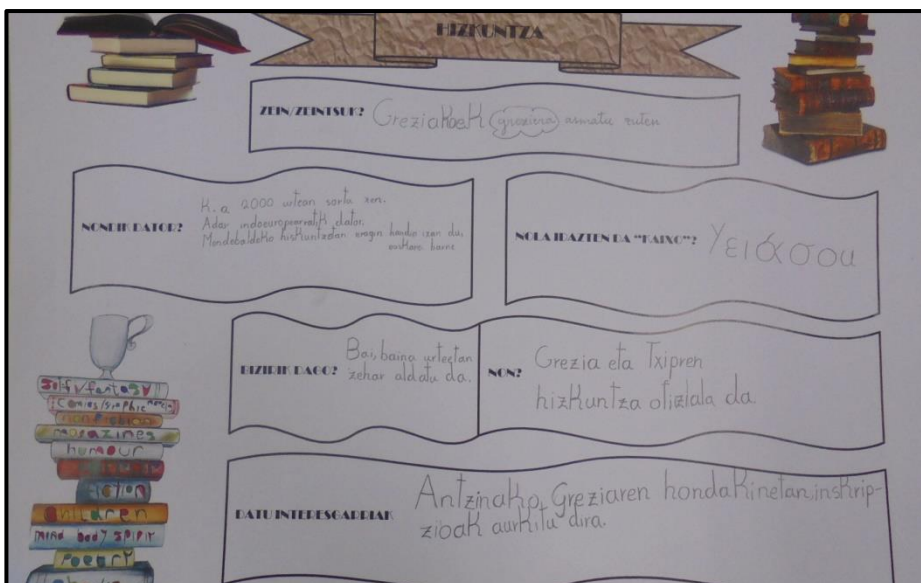 HIZKUNTZA
ZEIN/ZEINTSUK? Greziakoek (greziera) asmatu zuten
NONDIK DATOR?
K.a 2000 urtean sortu zen.
Adar indoeuroparratik dator.
Mendebaldeko hizkuntzetan eragin handia izan du,
euskara barne
NOLA IDAZTEN DA "KAIXO"? γειάσου
BIZIRIK DAGO?
Bai, baina urteetan
zehar aldatu da.
NON?
Grezia eta Txipren
hizkuntza ofiziala da
DATU INTERESGARRIAK
Antzinako Greziaren hondakinetan inskrip-
zioak aurkitu dira.
Scifi/fantasy
Comics/graphic
non fiction
magazines
humour
fiction
children
mind body spirit
Poetry